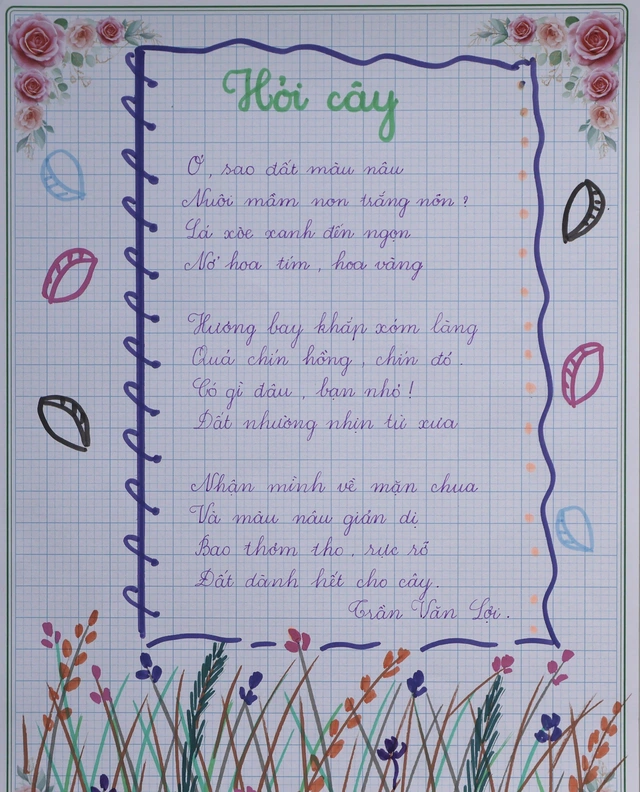 Hỏi cây
Ơ, sao đất màu nâu
Nuôi mầm non trắng nõn ?
Lá xòe xanh đến ngọn
Nở hoa tím, hoa vàng
Hương bay khắp xóm làng
Quả chín hồng, chín đỏ.
Có gì đâu, bạn nhỏ !
Đất nhường nhịn từ xưa
Nhận mình về mặn chua
Và màu nâu giản dị
Bao thơm tho, rực rỡ
Đất dành hết cho cây.
Trần Văn Lợi.